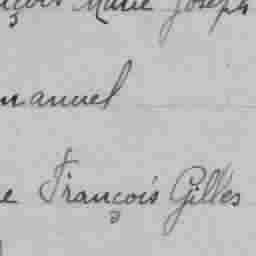 çois Marie Joseph
manuel
e François Gilles